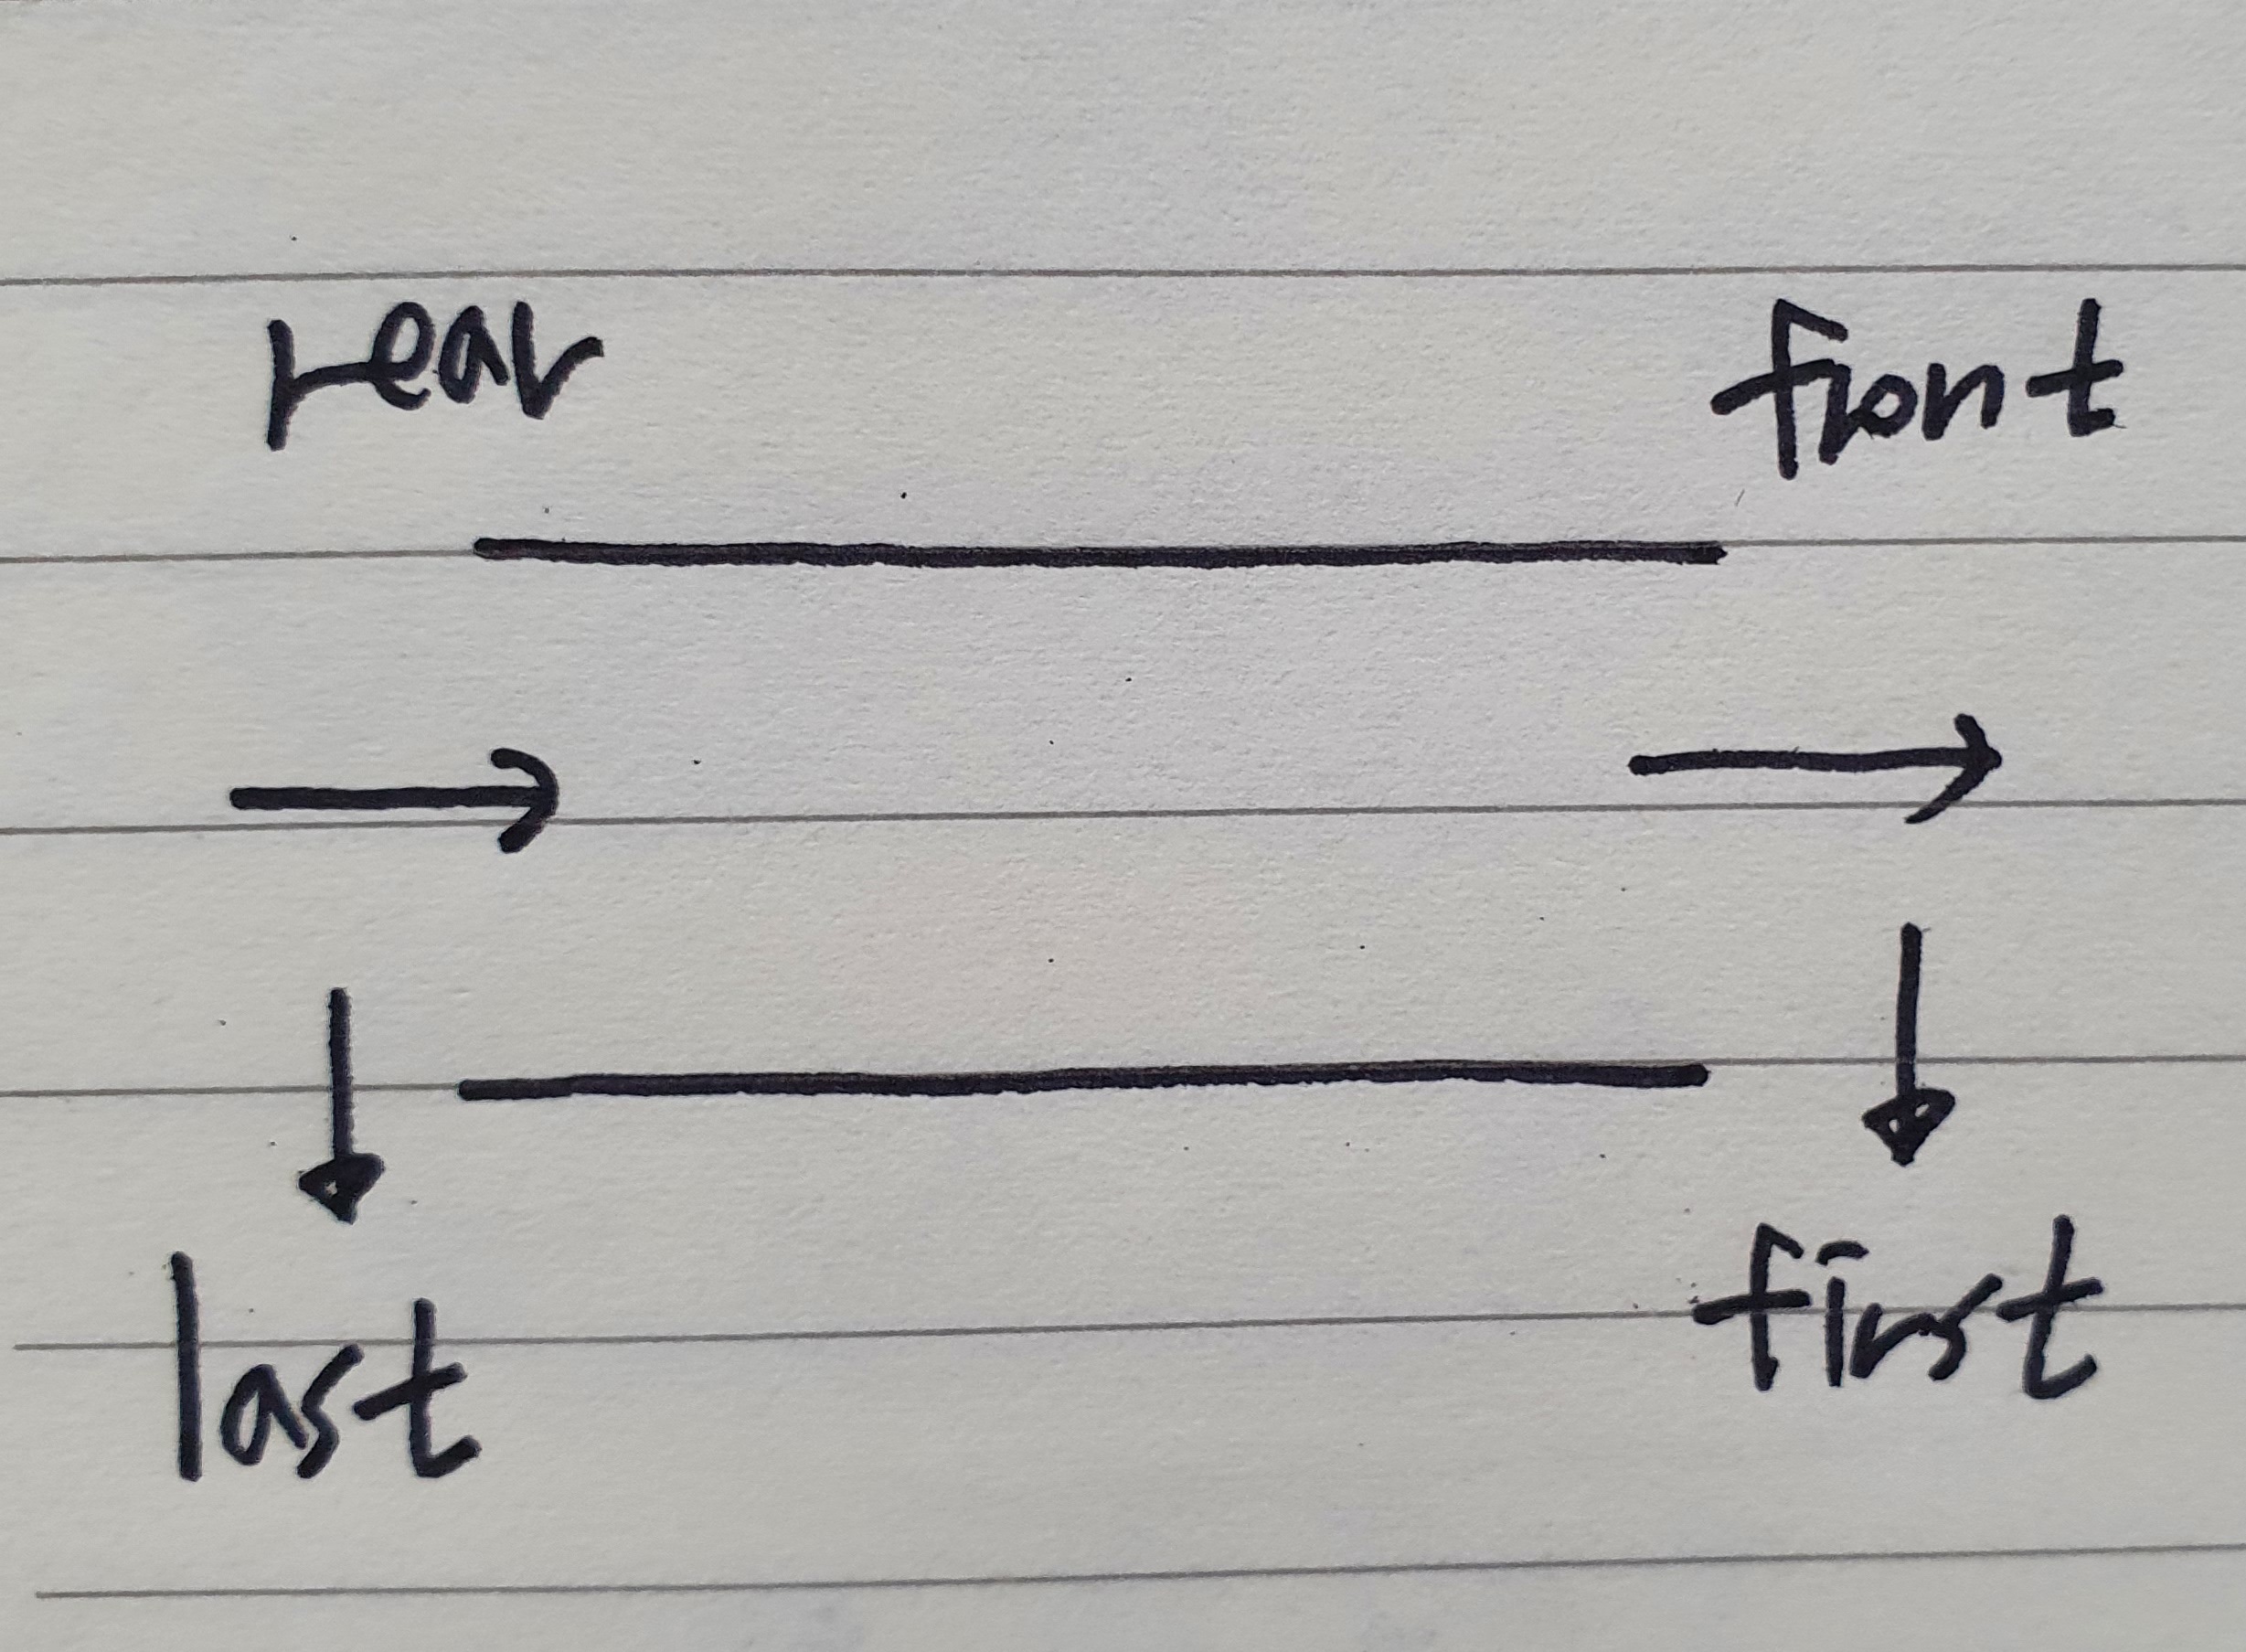 rear front
last first